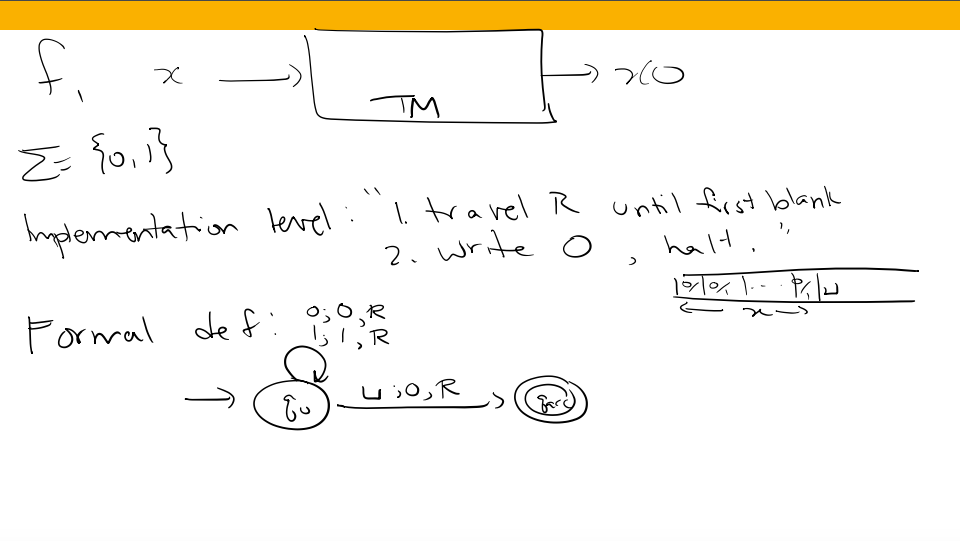 f₁ x → TM → x0
Σ = {0,1}
Implementation level: "1. travel R until first blank
2. write 0, halt."
|0/1|0/1|...|0/1|⊔
← x →
Formal def: 0;0,R
1;1,R
→ q₀ ⊔;0,R → qacc